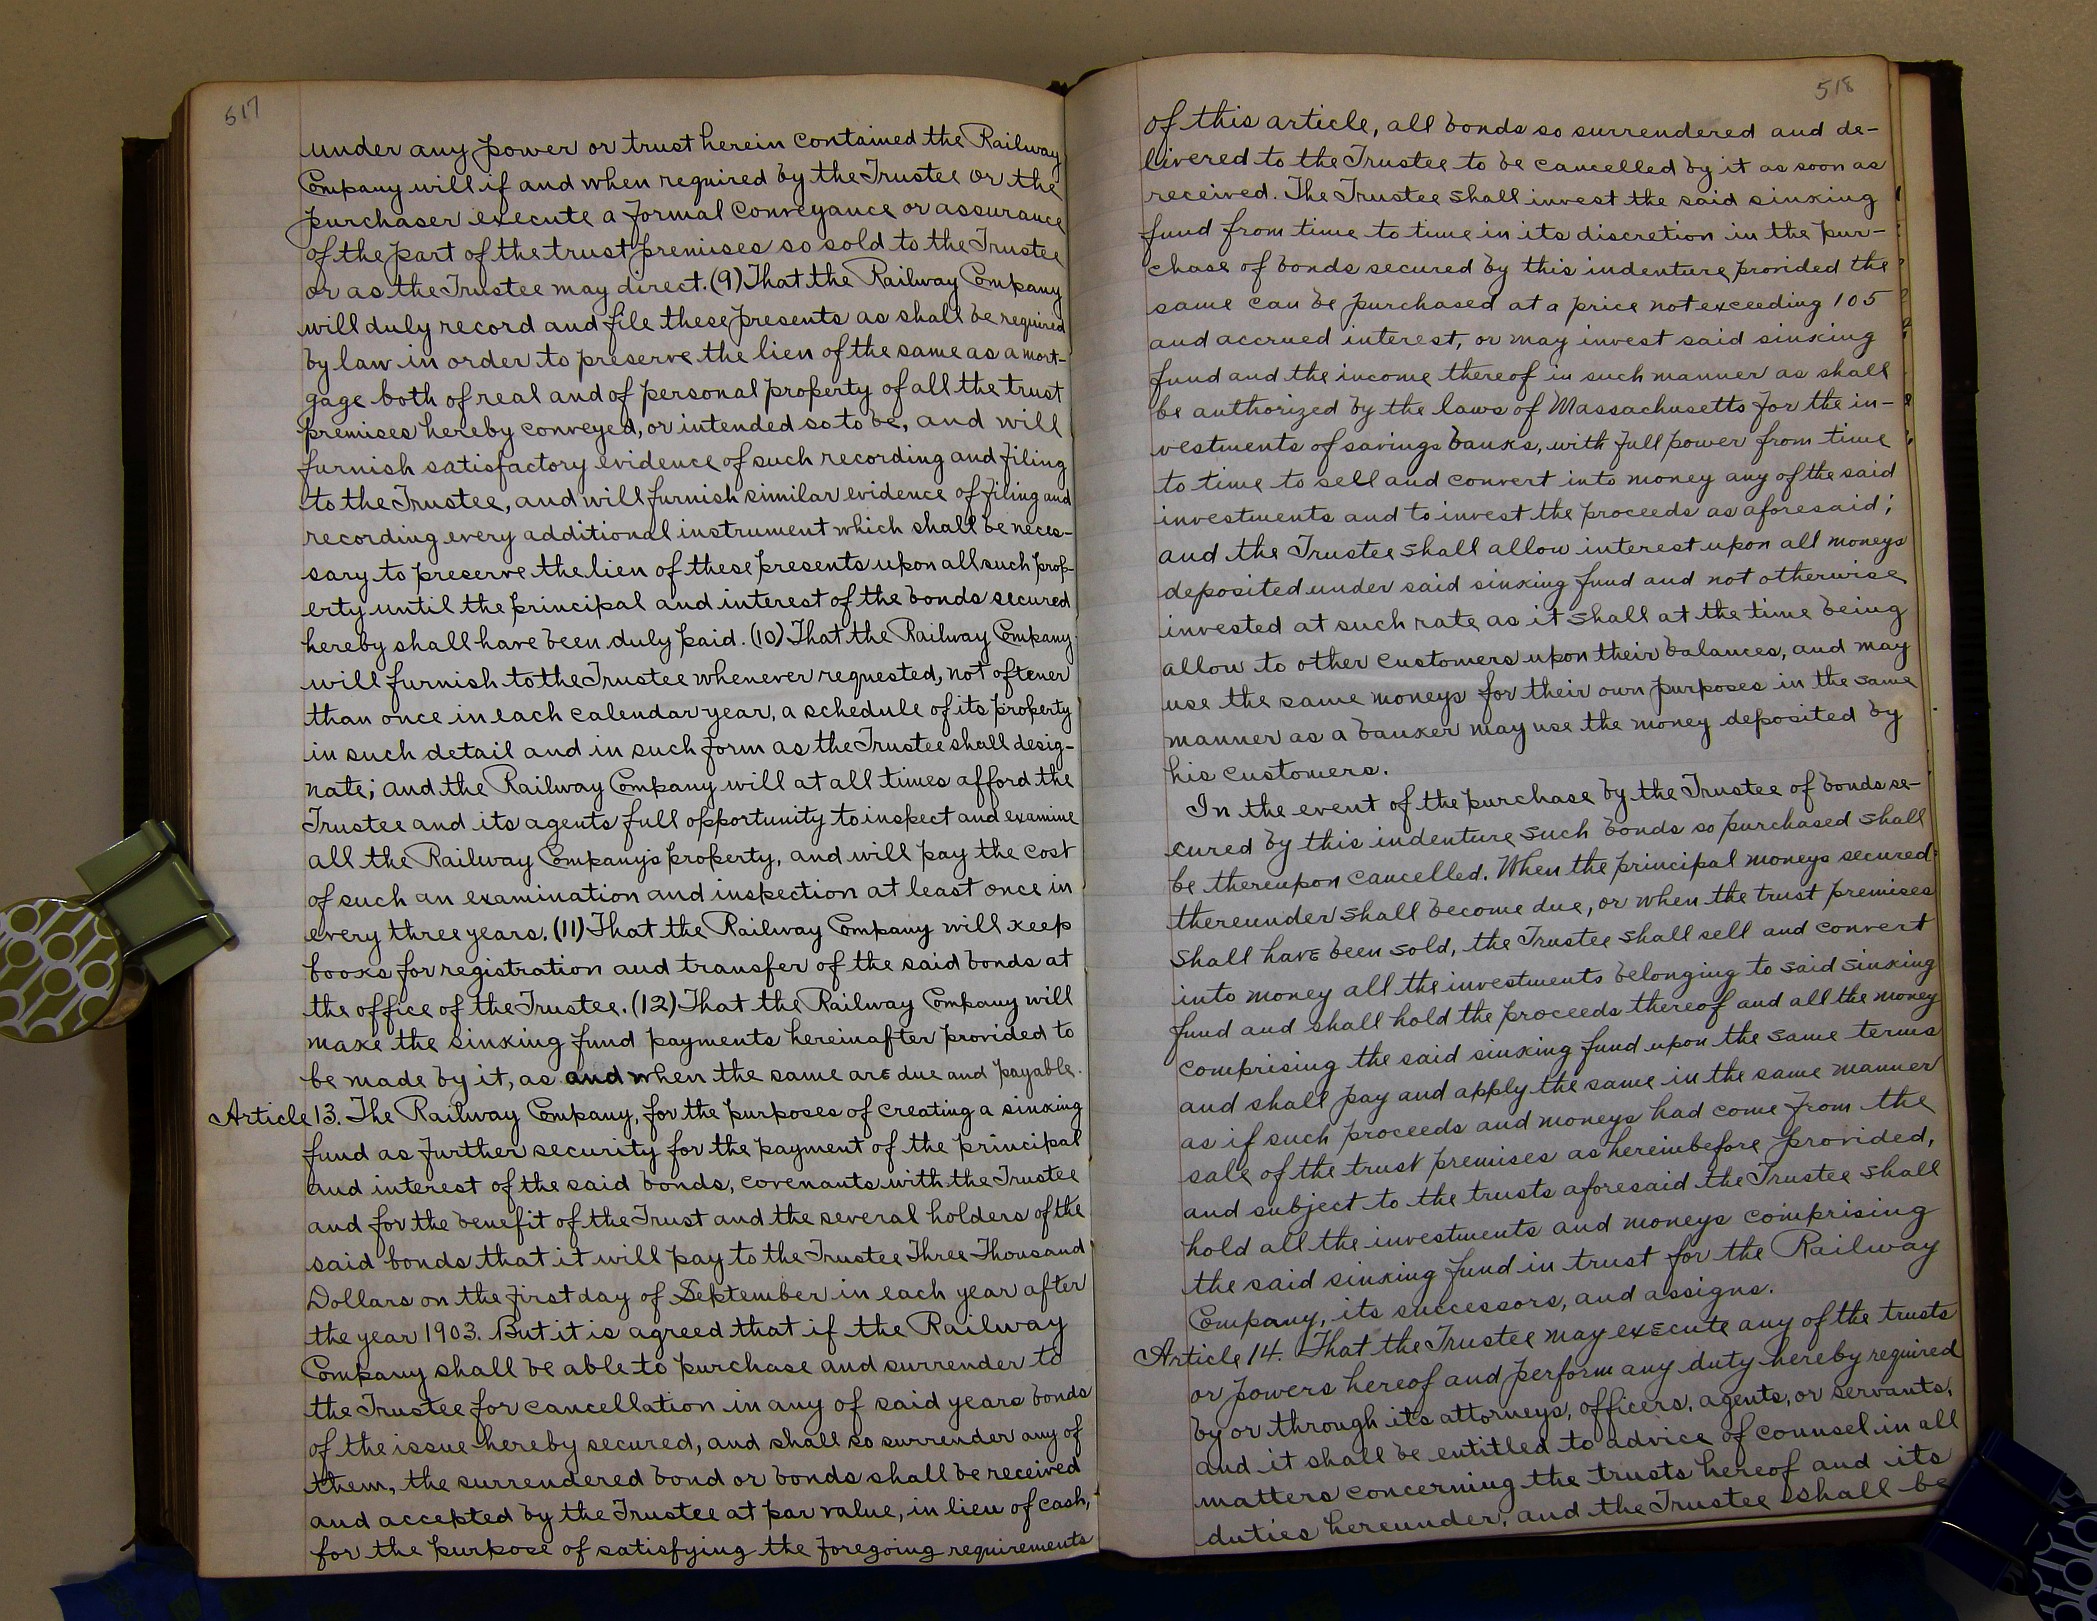 517
under any power or trust herein contained the Railway
Company will if and when required by the Trustee or the
purchaser execute a formal conveyance or assurance
of the part of the trust premises so sold to the Trustee
or as the Trustee may direct. (9) That the Railway Company
will duly record and file these presents as shall be required
by law in order to preserve the lien of the same as a mort-
gage both of real and of personal property of all the trust
premises hereby conveyed, or intended so to be, and will
furnish satisfactory evidence of such recording and filing
to the Trustee, and will furnish similar evidence of filing and
recording every additional instrument which shall be neces-
sary to preserve the lien of these presents upon all such prop-
erty until the principal and interest of the bonds secured
hereby shall have been duly paid. (10) That the Railway Company
will furnish to the Trustee whenever requested, not oftener
than once in each calendar year, a schedule of its property
in such detail and in such form as the Trustee shall desig-
nate; and the Railway Company will at all times afford the
Trustee and its agents full opportunity to inspect and examine
all the Railway Company's property, and will pay the cost
of such an examination and inspection at least once in
every three years. (11) That the Railway Company will keep
books for registration and transfer of the said bonds at
the office of the Trustee. (12) That the Railway Company will
make the sinking fund payments hereinafter provided to
be made by it, as and when the same are due and payable.
Article 13. The Railway Company, for the purposes of creating a sinking
fund as further security for the payment of the principal
and interest of the said bonds, covenants with the Trustee
and for the benefit of the Trust and the several holders of the
said bonds that it will pay to the Trustee Three Thousand
Dollars on the first day of September in each year after
the year 1903. But it is agreed that if the Railway
Company shall be able to purchase and surrender to
the Trustee for cancellation in any of said years bonds
of the issue hereby secured, and shall so surrender any of
them, the surrendered bond or bonds shall be received
and accepted by the Trustee at par value, in lieu of cash,
for the purpose of satisfying the foregoing requirements
518
of this article, all bonds so surrendered and de-
livered to the Trustee to be cancelled by it as soon as
received. The Trustee shall invest the said sinking
fund from time to time in its discretion in the pur-
chase of bonds secured by this indenture provided the
same can be purchased at a price not exceeding 105
and accrued interest, or may invest said sinking
fund and the income thereof in such manner as shall
be authorized by the laws of Massachusetts for the in-
vestments of savings banks, with full power from time
to time to sell and convert into money any of the said
investments and to invest the proceeds as aforesaid;
and the Trustee shall allow interest upon all moneys
deposited under said sinking fund and not otherwise
invested at such rate as it shall at the time being
allow to other customers upon their balances, and may
use the same moneys for their own purposes in the same
manner as a banker may use the money deposited by
his customers.
In the event of the purchase by the Trustee of bonds se-
cured by this indenture such bonds so purchased shall
be thereupon cancelled. When the principal moneys secured
thereunder shall become due, or when the trust premises
shall have been sold, the Trustee shall sell and convert
into money all the investments belonging to said sinking
fund and shall hold the proceeds thereof and all the money
comprising the said sinking fund upon the same terms
and shall pay and apply the same in the same manner
as if such proceeds and moneys had come from the
sale of the trust premises as hereinbefore provided,
and subject to the trusts aforesaid the Trustee shall
hold all the investments and moneys comprising
the said sinking fund in trust for the Railway
Company, its successors, and assigns.
Article 14. That the Trustee may execute any of the trusts
or powers hereof and perform any duty hereby required
by or through its attorneys, officers, agents, or servants,
and it shall be entitled to advice of counsel in all
matters concerning the trusts hereof and its
duties hereunder, and the Trustee shall be